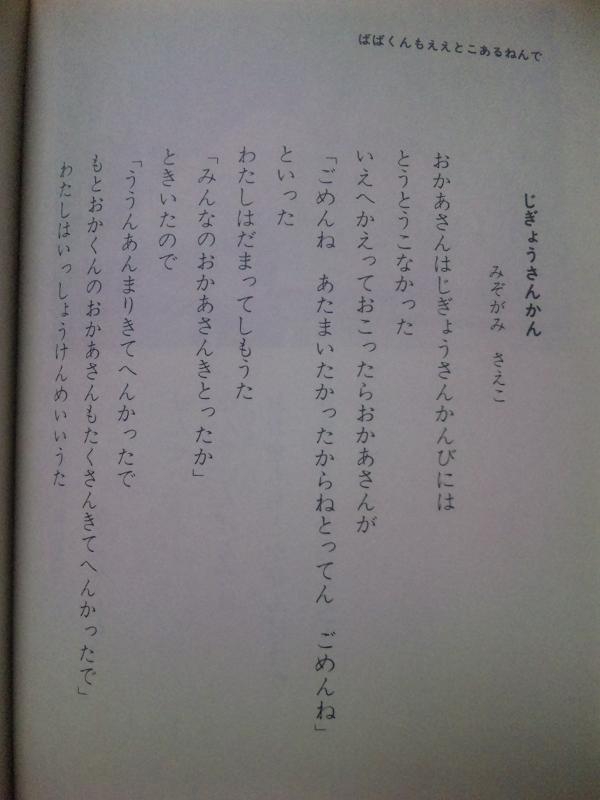 ばばくんもええとこあるねんで
じぎょうさんかん
みぞがみ　さえこ
おかあさんはじぎょうさんかんびには
とうとうこなかった
いえへかえっておこったらおかあさんが
「ごめんね　あたまいたかったからねとってん　ごめんね」
といった
わたしはだまってしもうた
「みんなのおかあさんきとったか」
ときいたので
「ううんあんまりきてへんかったで
もとおかくんのおかあさんもたくさんきてへんかったで」
わたしはいっしょうけんめいいうた